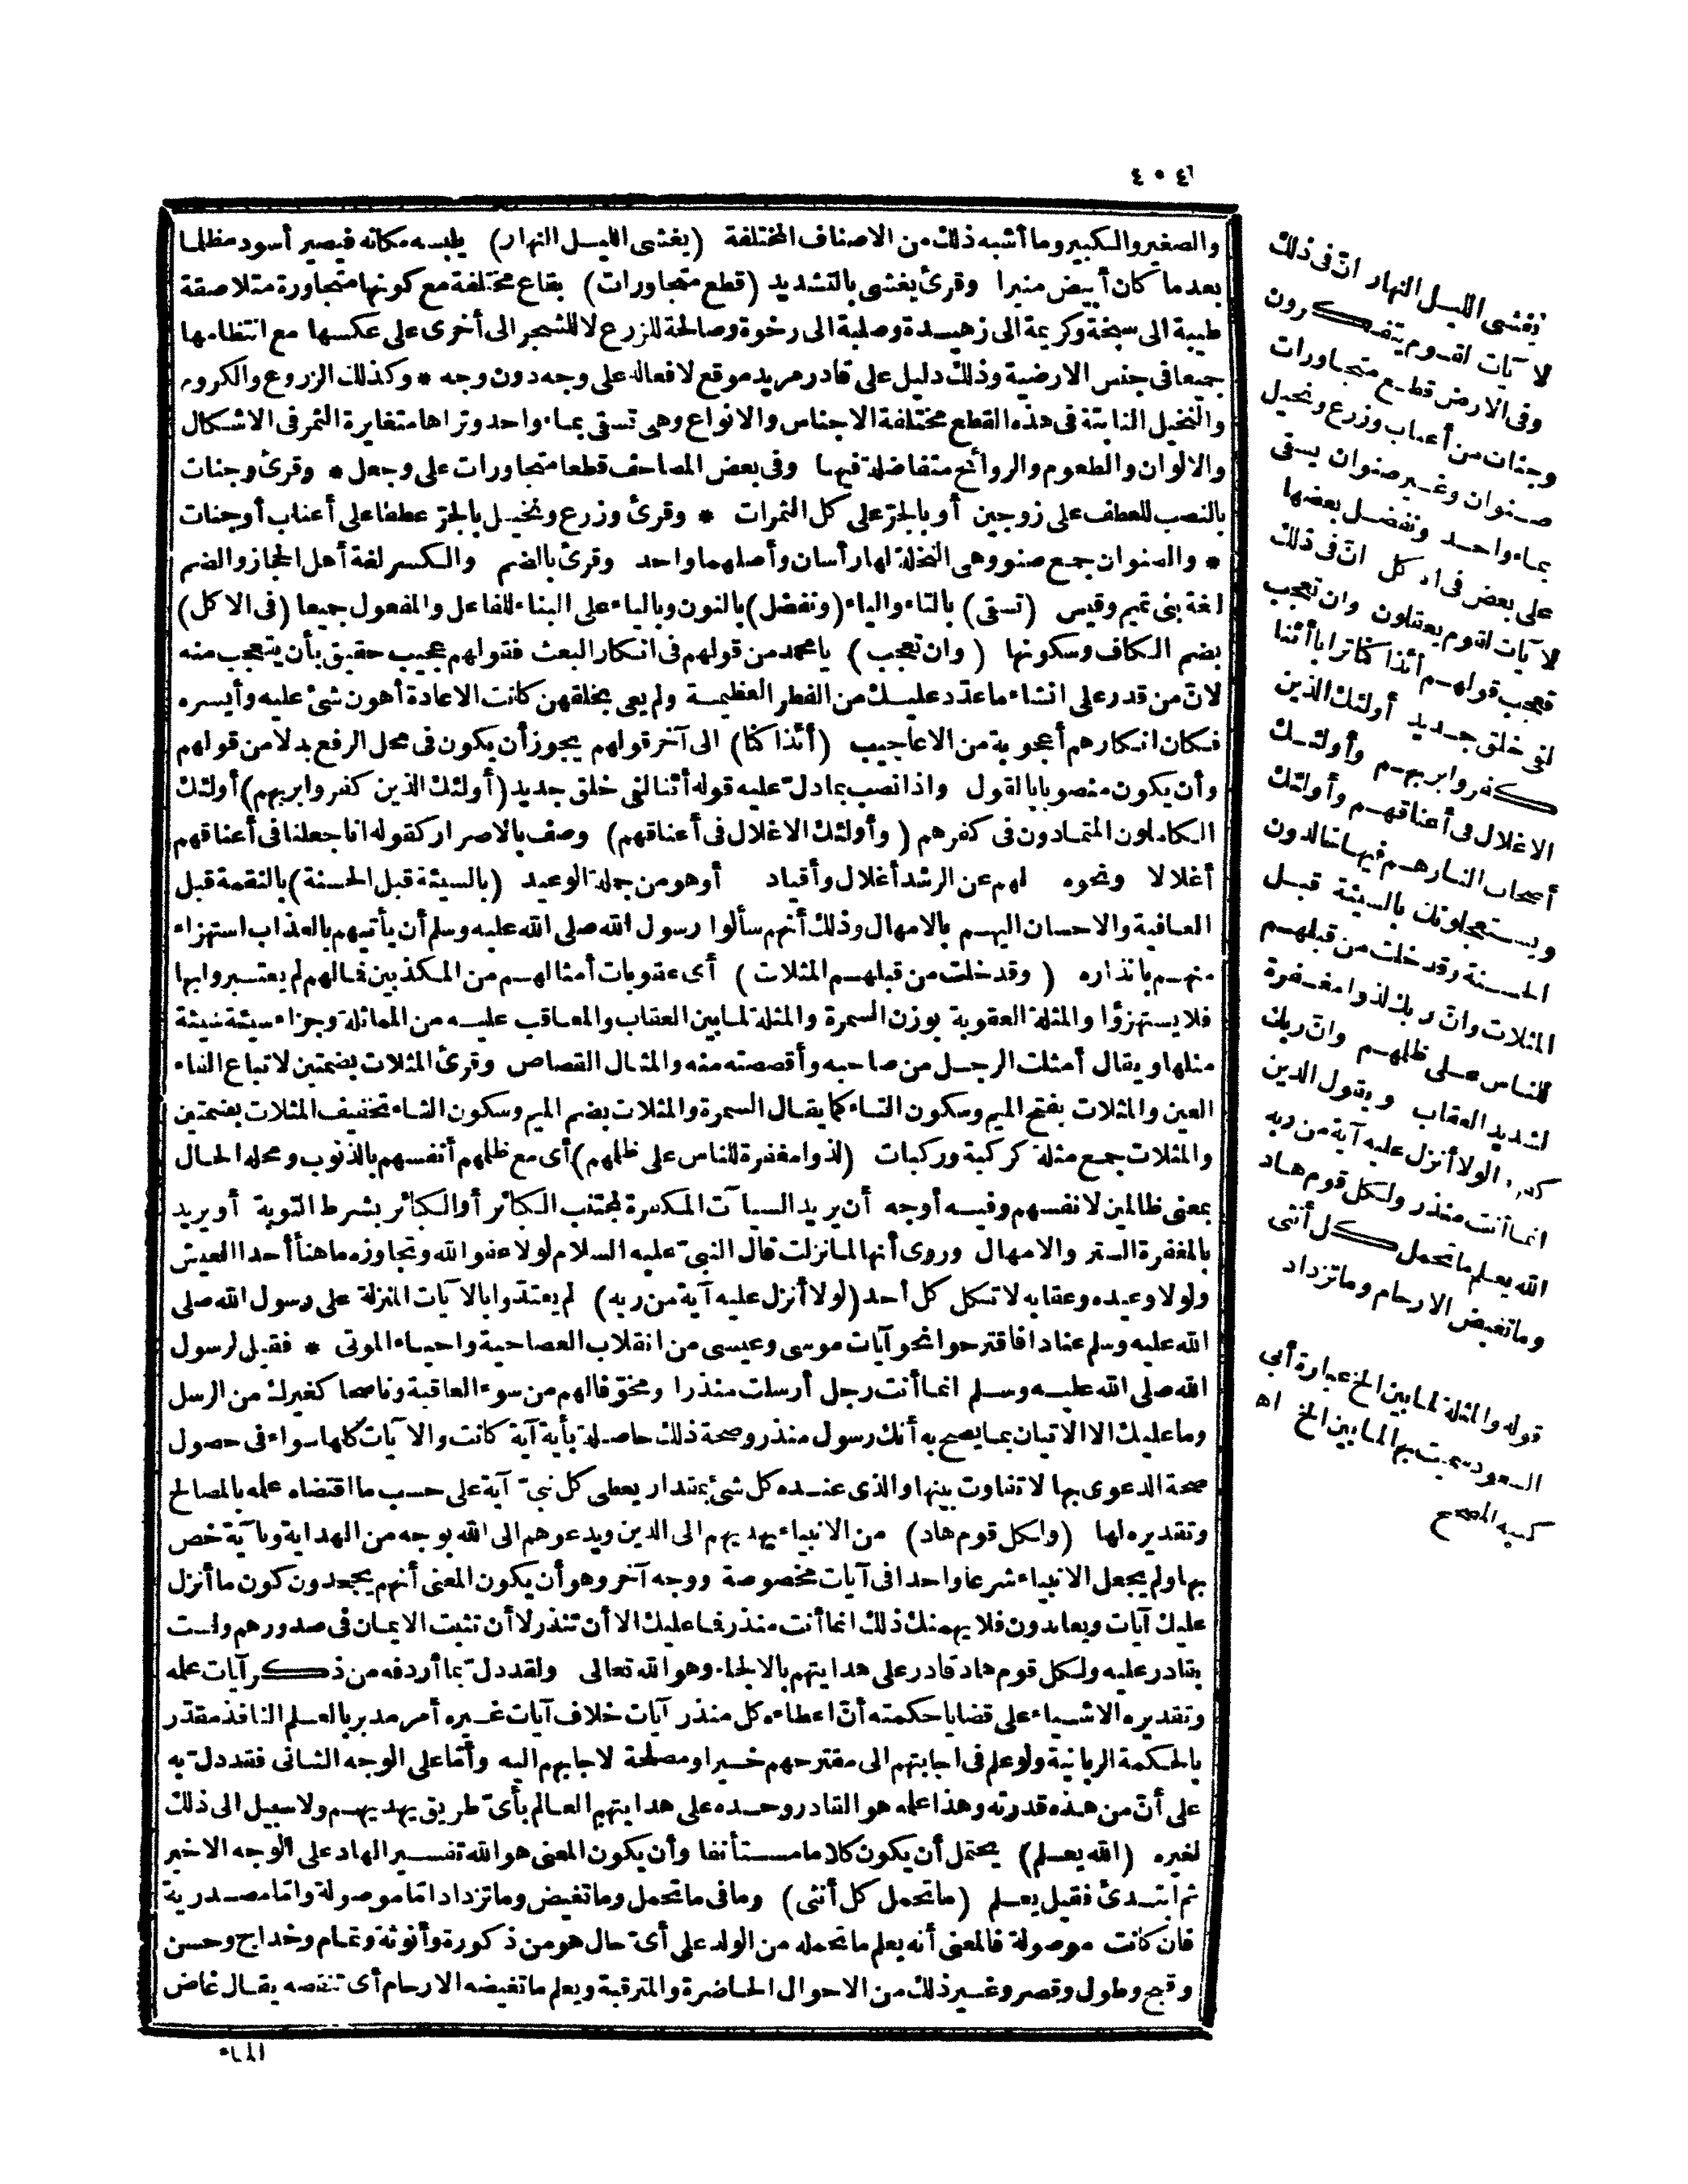 ٤٠٤
والصغير والكبير وما أشبه ذلك من الاصناف المختلفة (يغشى الليل النهار) يلبسه مكانه فيصير أسود مظلما
بعدما كان أبيض منيرا وقرئ يغشى بالتشديد (قطع متجاورات) بقاع مختلفة مع كونها متجاورة متلاصقة
طيبة الى سبخة وكريمة الى زهيدة وصلبة الى رخوة وصالحة للزرع لا للشجر الى أخرى على عكسها مع انتظامها
جميعا فى جنس الارضية وذلك دليل على قادر مريد موقع لافعاله على وجه دون وجه * وكذلك الزروع والكروم
والنخيل النابتة فى هذه القطع مختلفة الاجناس والانواع وهى تسقى بماء واحد وتراها متغايرة الثمر فى الاشكال
والالوان والطعوم والروائح متفاضلة فيها وفى بعض المصاحف قطعا متجاورات على وجعل * وقرئ وجنات
بالنصب للعطف على زوجين أو بالجرّ على كل الثمرات * وقرئ وزرع ونخيل بالجرّ عطفا على أعناب أو جنات
* والصنوان جمع صنو وهى النخلة لها رأسان وأصلهما واحد وقرئ بالضم والكسر لغة أهل الحجاز والضم
لغة بنى تميم وقيس (تسقى) بالتاء والياء (ونفضل) بالنون وبالياء على البناء للفاعل والمفعول جميعا (فى الاكل)
بضم الكاف وسكونها (وان تعجب) يا محمد من قولهم فى انكار البعث فقولهم عجيب حقيق بأن يتعجب منه
لانّ من قدر على انشاء ما عدّد عليك من الفطر العظيمة ولم يعى بخلقهن كانت الاعادة أهون شئ عليه وأيسره
فكان انكارهم أعجوبة من الاعاجيب (أئذا كنا) الى آخر قولهم يجوز أن يكون فى محل الرفع بدلا من قولهم
وأن يكون منصوبا بالقول واذا نصب بما دلّ عليه قوله أئنا لفى خلق جديد (أولئك الذين كفروا بربهم) أولئك
الكاملون المتمادون فى كفرهم (وأولئك الاغلال فى أعناقهم) وصف بالاصرار كقوله انا جعلنا فى أعناقهم
أغلالا ونحوه لهم عن الرشد أغلال وأقياد أو هو من جملة الوعيد (بالسيئة قبل الحسنة) بالنقمة قبل
العافية والاحسان اليهم بالامهال وذلك أنهم سألوا رسول الله صلى الله عليه وسلم أن يأتيهم بالعذاب استهزاء
منهم بانذاره (وقد خلت من قبلهم المثلات) أى عقوبات أمثالهم من المكذبين فما لهم لم يعتبروا بها
فلا يستهزؤا والمثلة العقوبة بوزن السمرة والمثلة لما بين العقاب والمعاقب عليه من المماثلة وجزاء سيئة سيئة
مثلها ويقال أمثلت الرجل من صاحبه وأقصصته منه والمثال القصاص وقرئ المثلات بضمتين لاتباع الفاء
العين والمثلات بفتح الميم وسكون الثاء كما يقال السمرة والمثلات بضم الميم وسكون الثاء تخفيف المثلات بضمتين
والمثلات جمع مثلة كركبة وركبات (لذو مغفرة للناس على ظلمهم) أى مع ظلمهم أنفسهم بالذنوب ومحله الحال
بمعنى ظالمين لانفسهم وفيه أوجه أن يريد السيات المكفرة لمجتنب الكبائر أو الكبائر بشرط التوبة أو يريد
بالمغفرة الستر والامهال وروى أنها لما نزلت قال النبىّ عليه السلام لولا عفو الله وتجاوزه ما هنأ أحدا العيش
ولولا وعيده وعقابه لاتكل كل أحد (لولا أنزل عليه آية من ربه) لم يعتدّوا بالآيات المنزلة على رسول الله صلى
الله عليه وسلم عنادا فاقترحوا نحو آيات موسى وعيسى من انقلاب العصا حية واحياء الموتى * فقيل لرسول
الله صلى الله عليه وسلم انما أنت رجل أرسلت منذرا ومخوّفا لهم من سوء العاقبة وناصحا كغيرك من الرسل
وما عليك الا الاتيان بما يصح به أنك رسول منذر وصحة ذلك حاصلة بأية آية كانت والآيات كلها سواء فى حصول
صحة الدعوى بها لا تفاوت بينها والذى عنده كل شئ بمقدار يعطى كل نبىّ آية على حسب ما اقتضاه علمه بالمصالح
وتقديره لها (ولكل قوم هاد) من الانبياء يهديهم الى الدين ويدعوهم الى الله بوجه من الهداية وبآية خص
بها ولم يجعل الانبياء شرعا واحدا فى آيات مخصوصة ووجه آخر وهو أن يكون المعنى أنهم يجحدون كون ما أنزل
عليك آيات ويعاندون فلا يهمنك ذلك انما أنت منذر فما عليك الا أن تنذر لا أن تثبت الايمان فى صدورهم ولست
بقادر عليه ولكل قوم هاد قادر على هدايتهم بالالجاء وهو الله تعالى ولقد دلّ بما أردفه من ذكر آيات علمه
وتقديره الاشياء على قضايا حكمته أنّ اعطاءه كل منذر آيات خلاف آيات غيره أمر مدبر بالعلم النافذ مقدّر
بالحكمة الربانية ولو علم فى اجابتهم الى مقترحهم خيرا ومصلحة لاجابهم اليه وأمّا على الوجه الثانى فقد دلّ به
على أنّ من هذه قدرته وهذا علمه هو القادر وحده على هدايتهم العالم بأىّ طريق يهديهم ولا سبيل الى ذلك
لغيره (الله يعلم) يحتمل أن يكون كلاما مستأنفا وأن يكون المعنى هو الله تفسير الهاد على الوجه الاخير
ثم ابتدئ فقيل يعلم (ما تحمل كل أنثى) وما فى ما تحمل وما تغيض وما تزداد امّا موصولة وامّا مصدرية
فان كانت موصولة فالمعنى أنه يعلم ما تحمله من الولد على أىّ حال هو من ذكورة وأنوثة وتمام وخداج وحسن
وقبح وطول وقصر وغير ذلك من الاحوال الحاضرة والمترقبة ويعلم ما تغيضه الارحام أى تنقصه يقال غاض
الماء
يغشى الليل النهار انّ فى ذلك
لآيات لقوم يتفكرون
وفى الارض قطع متجاورات
وجنات من أعناب وزرع ونخيل
صنوان وغير صنوان يسقى
بماء واحد ونفضل بعضها
على بعض فى الاكل انّ فى ذلك
لآيات لقوم يعقلون وان تعجب
فعجب قولهم أئذا كنا ترابا أئنا
لفى خلق جديد أولئك الذين
كفروا بربهم وأولئك
الاغلال فى أعناقهم وأولئك
أصحاب النار هم فيها خالدون
ويستعجلونك بالسيئة قبل
الحسنة وقد خلت من قبلهم
المثلات وانّ ربك لذو مغفرة
للناس على ظلمهم وانّ ربك
لشديد العقاب ويقول الذين
كفروا لولا أنزل عليه آية من ربه
انما أنت منذر ولكل قوم هاد
الله يعلم ما تحمل كل أنثى
وما تغيض الارحام وما تزداد
قوله والمثلة لما بين الخ عبارة أبى
السعود سميت بها لما بين الخ اه
كتبه المصحح